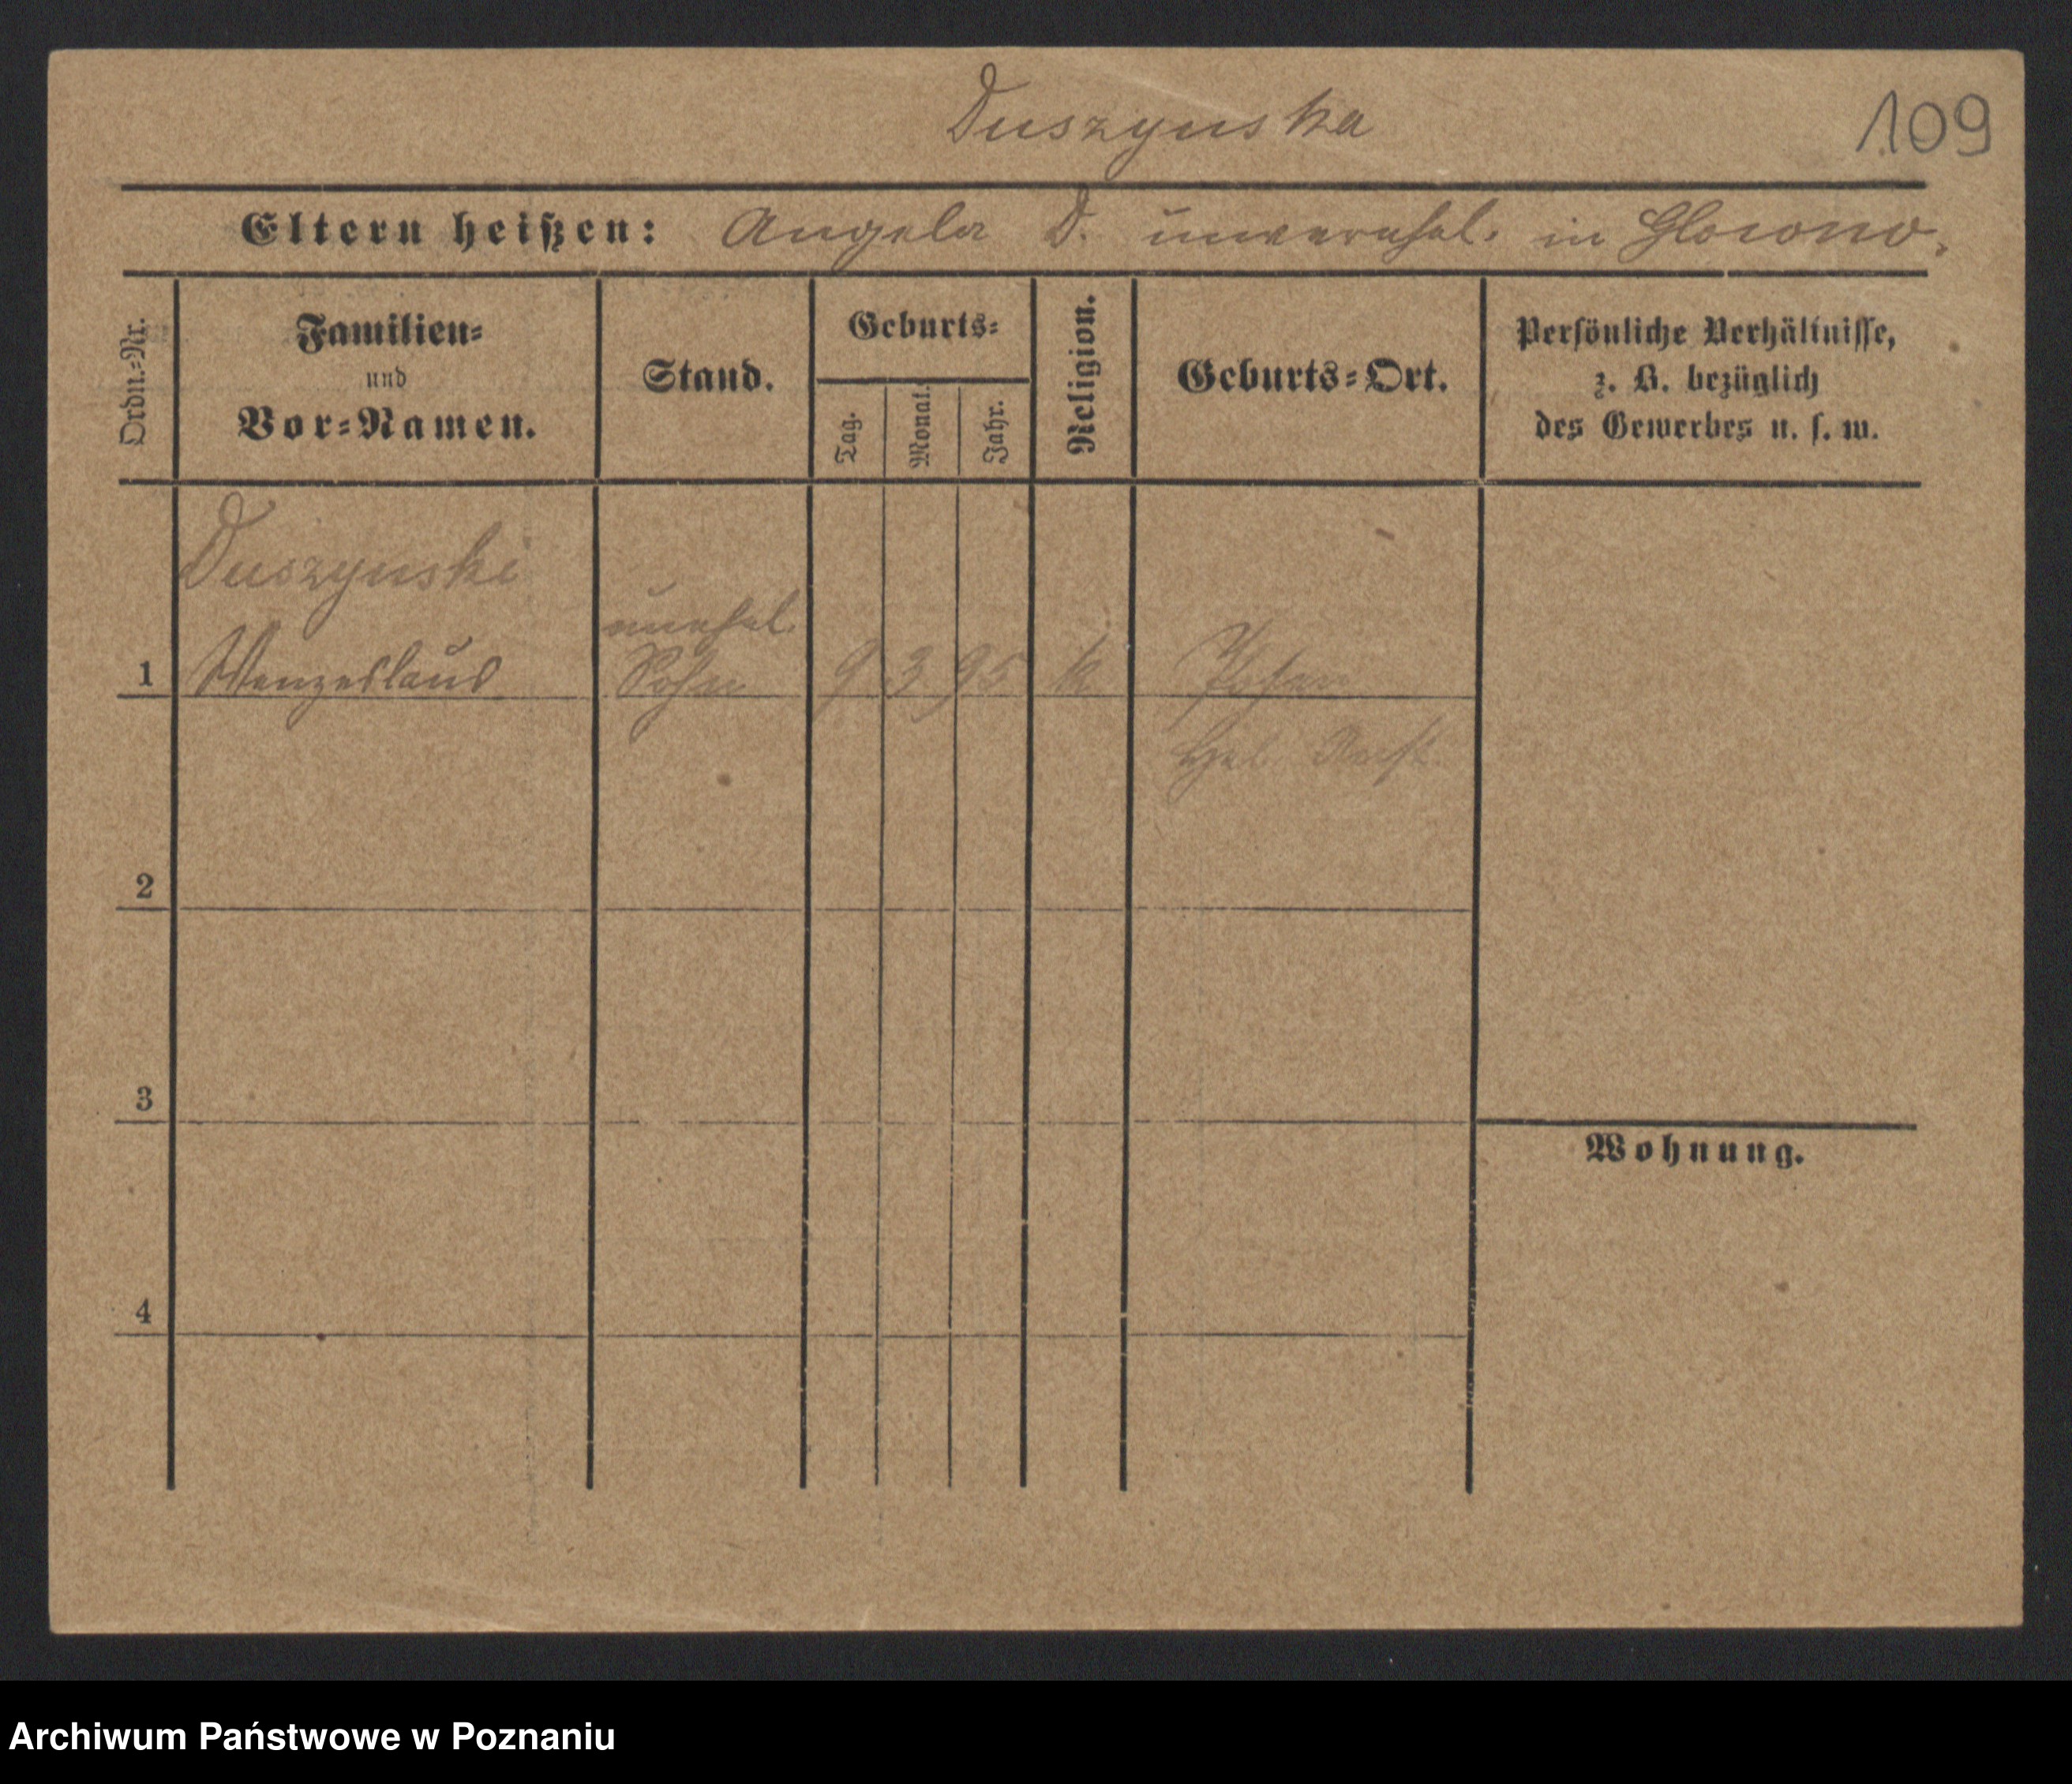 Duszynska
109
Eltern heißen: Angela D. unverehel. in Glowno.
Ordn.-Nr.
Familien-
und
Vor-Namen.
Stand.
Geburts-
Tag.
Monat.
Jahr.
Religion.
Geburts-Ort.
Persönliche Verhältnisse,
z. B. bezüglich
des Gewerbes u. s. w.
Duszynski
unehel.
1 Wenzeslaus Sohn 9 3 95 k Posen
Geb.
2
3
Wohnung.
4
Archiwum Państwowe w Poznaniu